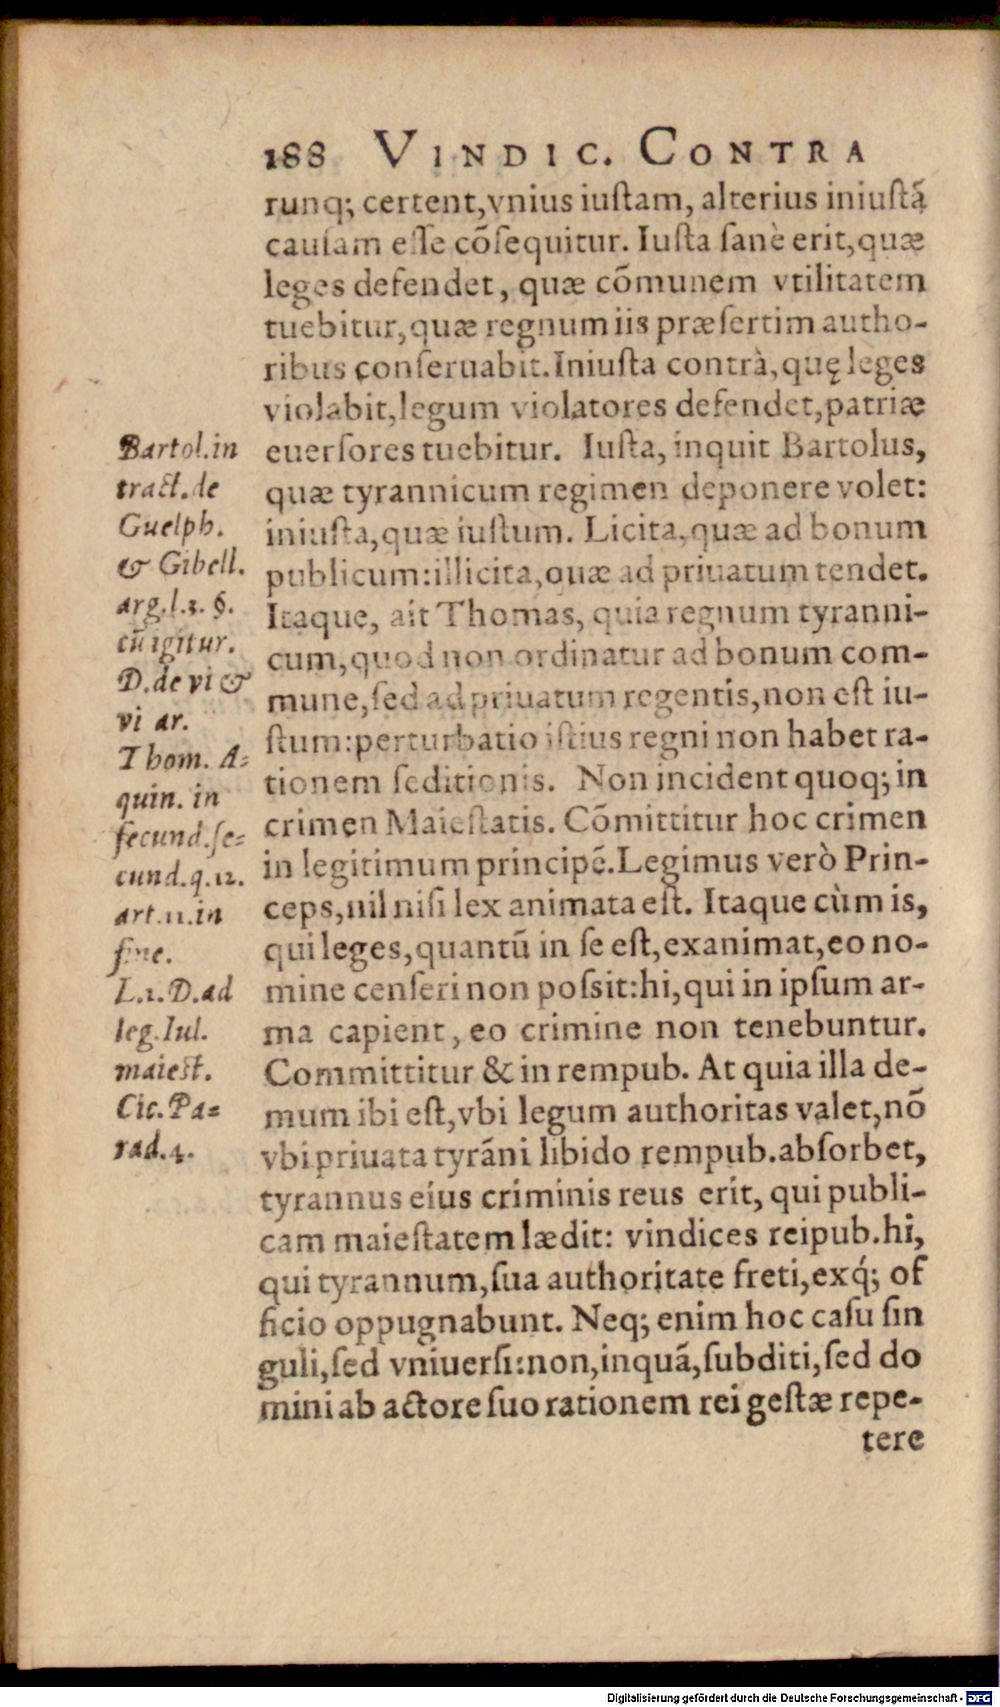 188 VINDIC. CONTRA
runq; certent,vnius iuſtam, alterius iniuſtã
cauſam eſſe cõſequitur. Iuſta ſanè erit,quæ
leges defendet, quæ cõmunem vtilitatem
tuebitur,quæ regnum iis præſertim autho-
ribus conſeruabit.Iniuſta contrà,quę leges
violabit,legum violatores defendet,patriæ
euerſores tuebitur. Iuſta, inquit Bartolus,
quæ tyrannicum regimen deponere volet:
iniuſta,quæ iuſtum. Licita,quæ ad bonum
publicum:illicita,quæ ad priuatum tendet.
Itaque, ait Thomas, quia regnum tyranni-
cum,quod non ordinatur ad bonum com-
mune,ſed ad priuatum regentis,non eſt iu-
ſtum:perturbatio iſtius regni non habet ra-
tionem ſeditionis. Non incident quoq; in
crimen Maieſtatis. Cõmittitur hoc crimen
in legitimum principẽ.Legimus verò Prin-
ceps,nil niſi lex animata eſt. Itaque cùm is,
qui leges,quantũ in ſe eſt,exanimat,eo no-
mine cenſeri non poſsit:hi,qui in ipſum ar-
ma capient, eo crimine non tenebuntur.
Committitur & in rempub. At quia illa de-
mum ibi eſt,vbi legum authoritas valet,nõ
vbi priuata tyrãni libido rempub.abſorbet,
tyrannus eius criminis reus erit, qui publi-
cam maieſtatem lædit: vindices reipub.hi,
qui tyrannum,ſua authoritate freti,exq́; of
ficio oppugnabunt. Neq; enim hoc caſu ſin
guli,ſed vniuerſi:non,inquã,ſubditi,ſed do
mini ab actore ſuo rationem rei geſtæ repe-
tere
Bartol.in
tract.de
Guelph.
& Gibell.
arg.l.3. §.
cũ igitur.
D.de vi &
vi ar.
Thom. A-
quin. in
ſecund.ſe-
cund.q.12.
art.11.in
fine.
L.1.D.ad
leg.Iul.
maieſt.
Cic.Pa-
rad.4.
Digitalisierung gefördert durch die Deutsche Forschungsgemeinschaft - DFG